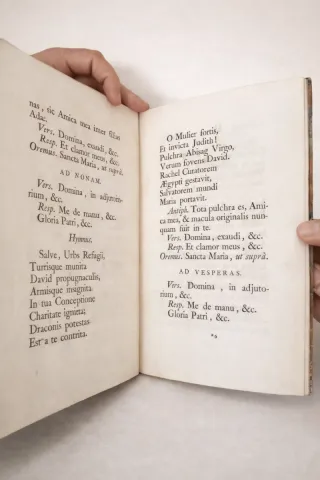 nas, sic Amica mea inter filias
Adæ.
Vers. Domina, exaudi, &c.
Resp. Et clamor meus, &c.
Oremus. Sancta Maria, ut suprà.
AD NONAM.
Vers. Domina, in adjuto-
rium, &c.
Resp. Me de manu, &c.
Gloria Patri, &c.
Hymnus.
Salve, Urbs Refugii,
Turrisque munita
David propugnaculis,
Armisque insignita.
In tua Conceptione
Charitate ignita;
Draconis potestas
Est a te contrita.
O Mulier fortis,
Et invicta Judith!
Pulchra Abisag Virgo,
Verum fovens David.
Rachel Curatorem
Ægypti gestavit,
Salvatorem mundi
Maria portavit.
Antiph. Tota pulchra es, Ami-
ca mea, & macula originalis nun-
quam fuit in te.
Vers. Domina, exaudi, &c.
Resp. Et clamor meus, &c.
Oremus. Sancta Maria, ut suprà.
AD VESPERAS.
Vers. Domina, in adjuto-
rium, &c.
Resp. Me de manu, &c.
Gloria Patri, &c.